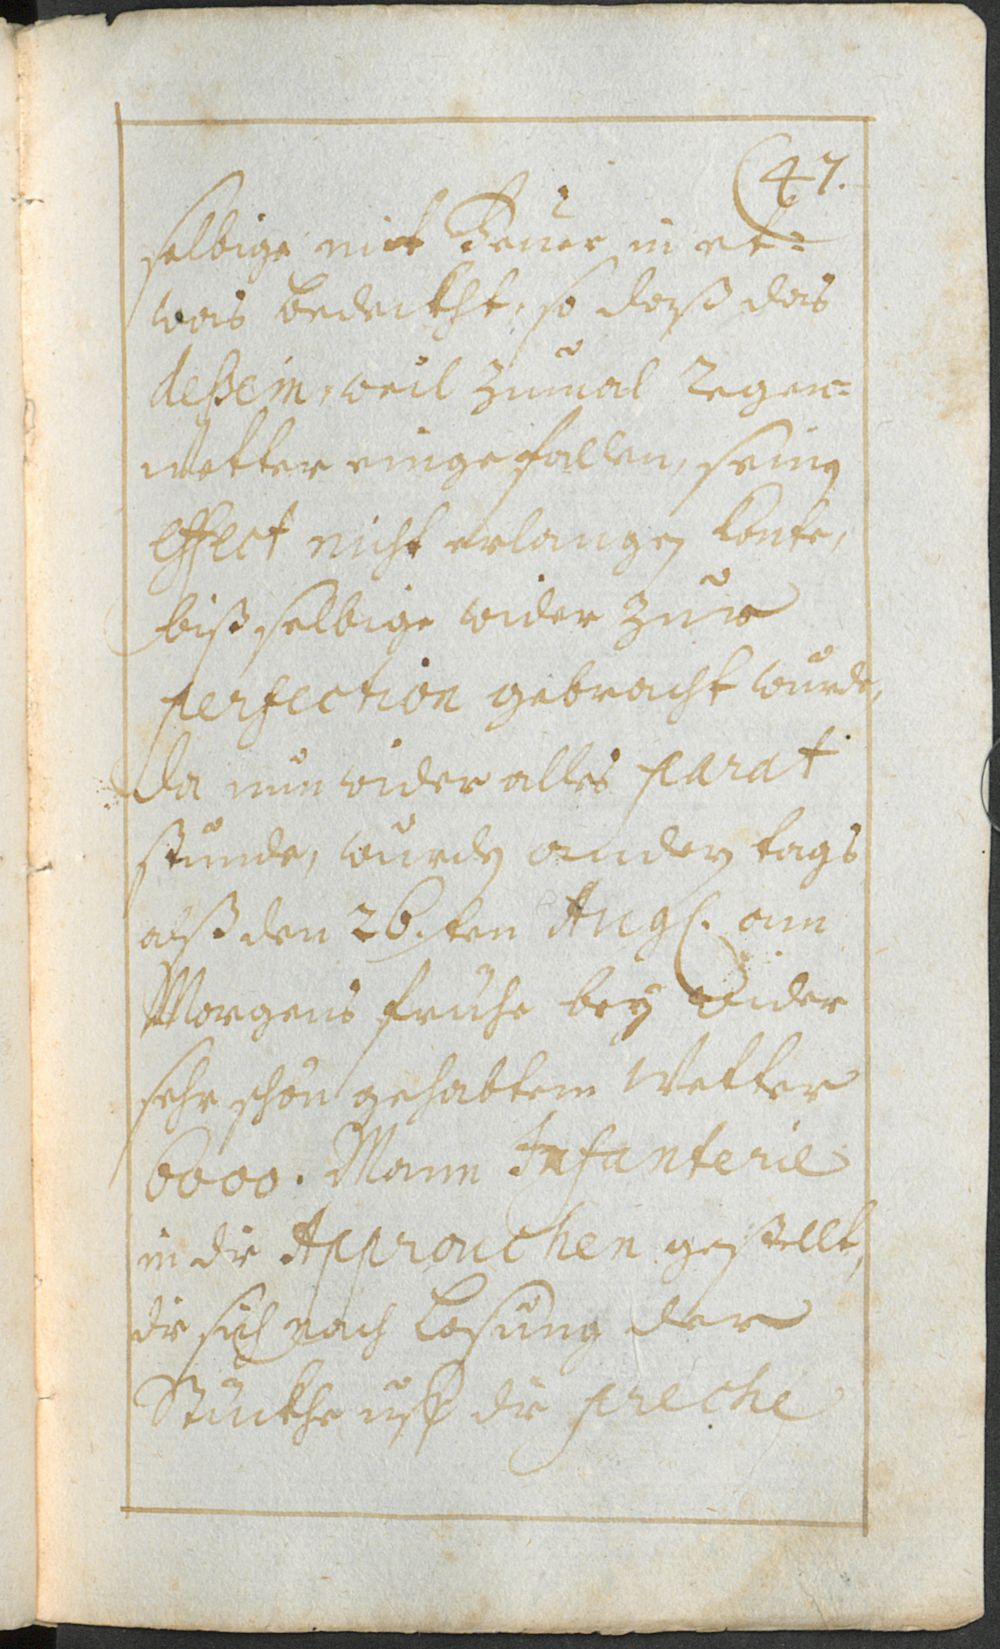 47.
selbige mit Feuer in et=
was bedeckht, so daß das
deßein, weil zumal Regen=
wetter eingefallen, seinen
effect nicht erlangen konte,
biß selbige wider zur
perfection gebracht wurde,
da nun wider alles parat
stunde, wurden andern tags
alß den 26.ten Aug. am
Morgens fruhe bey wider
sehr schön gehabtem Wetter
6000. Mann Infanterie
in die Approuchen gestellt,
die sich nach Losung der
Stuckhe uff die preche